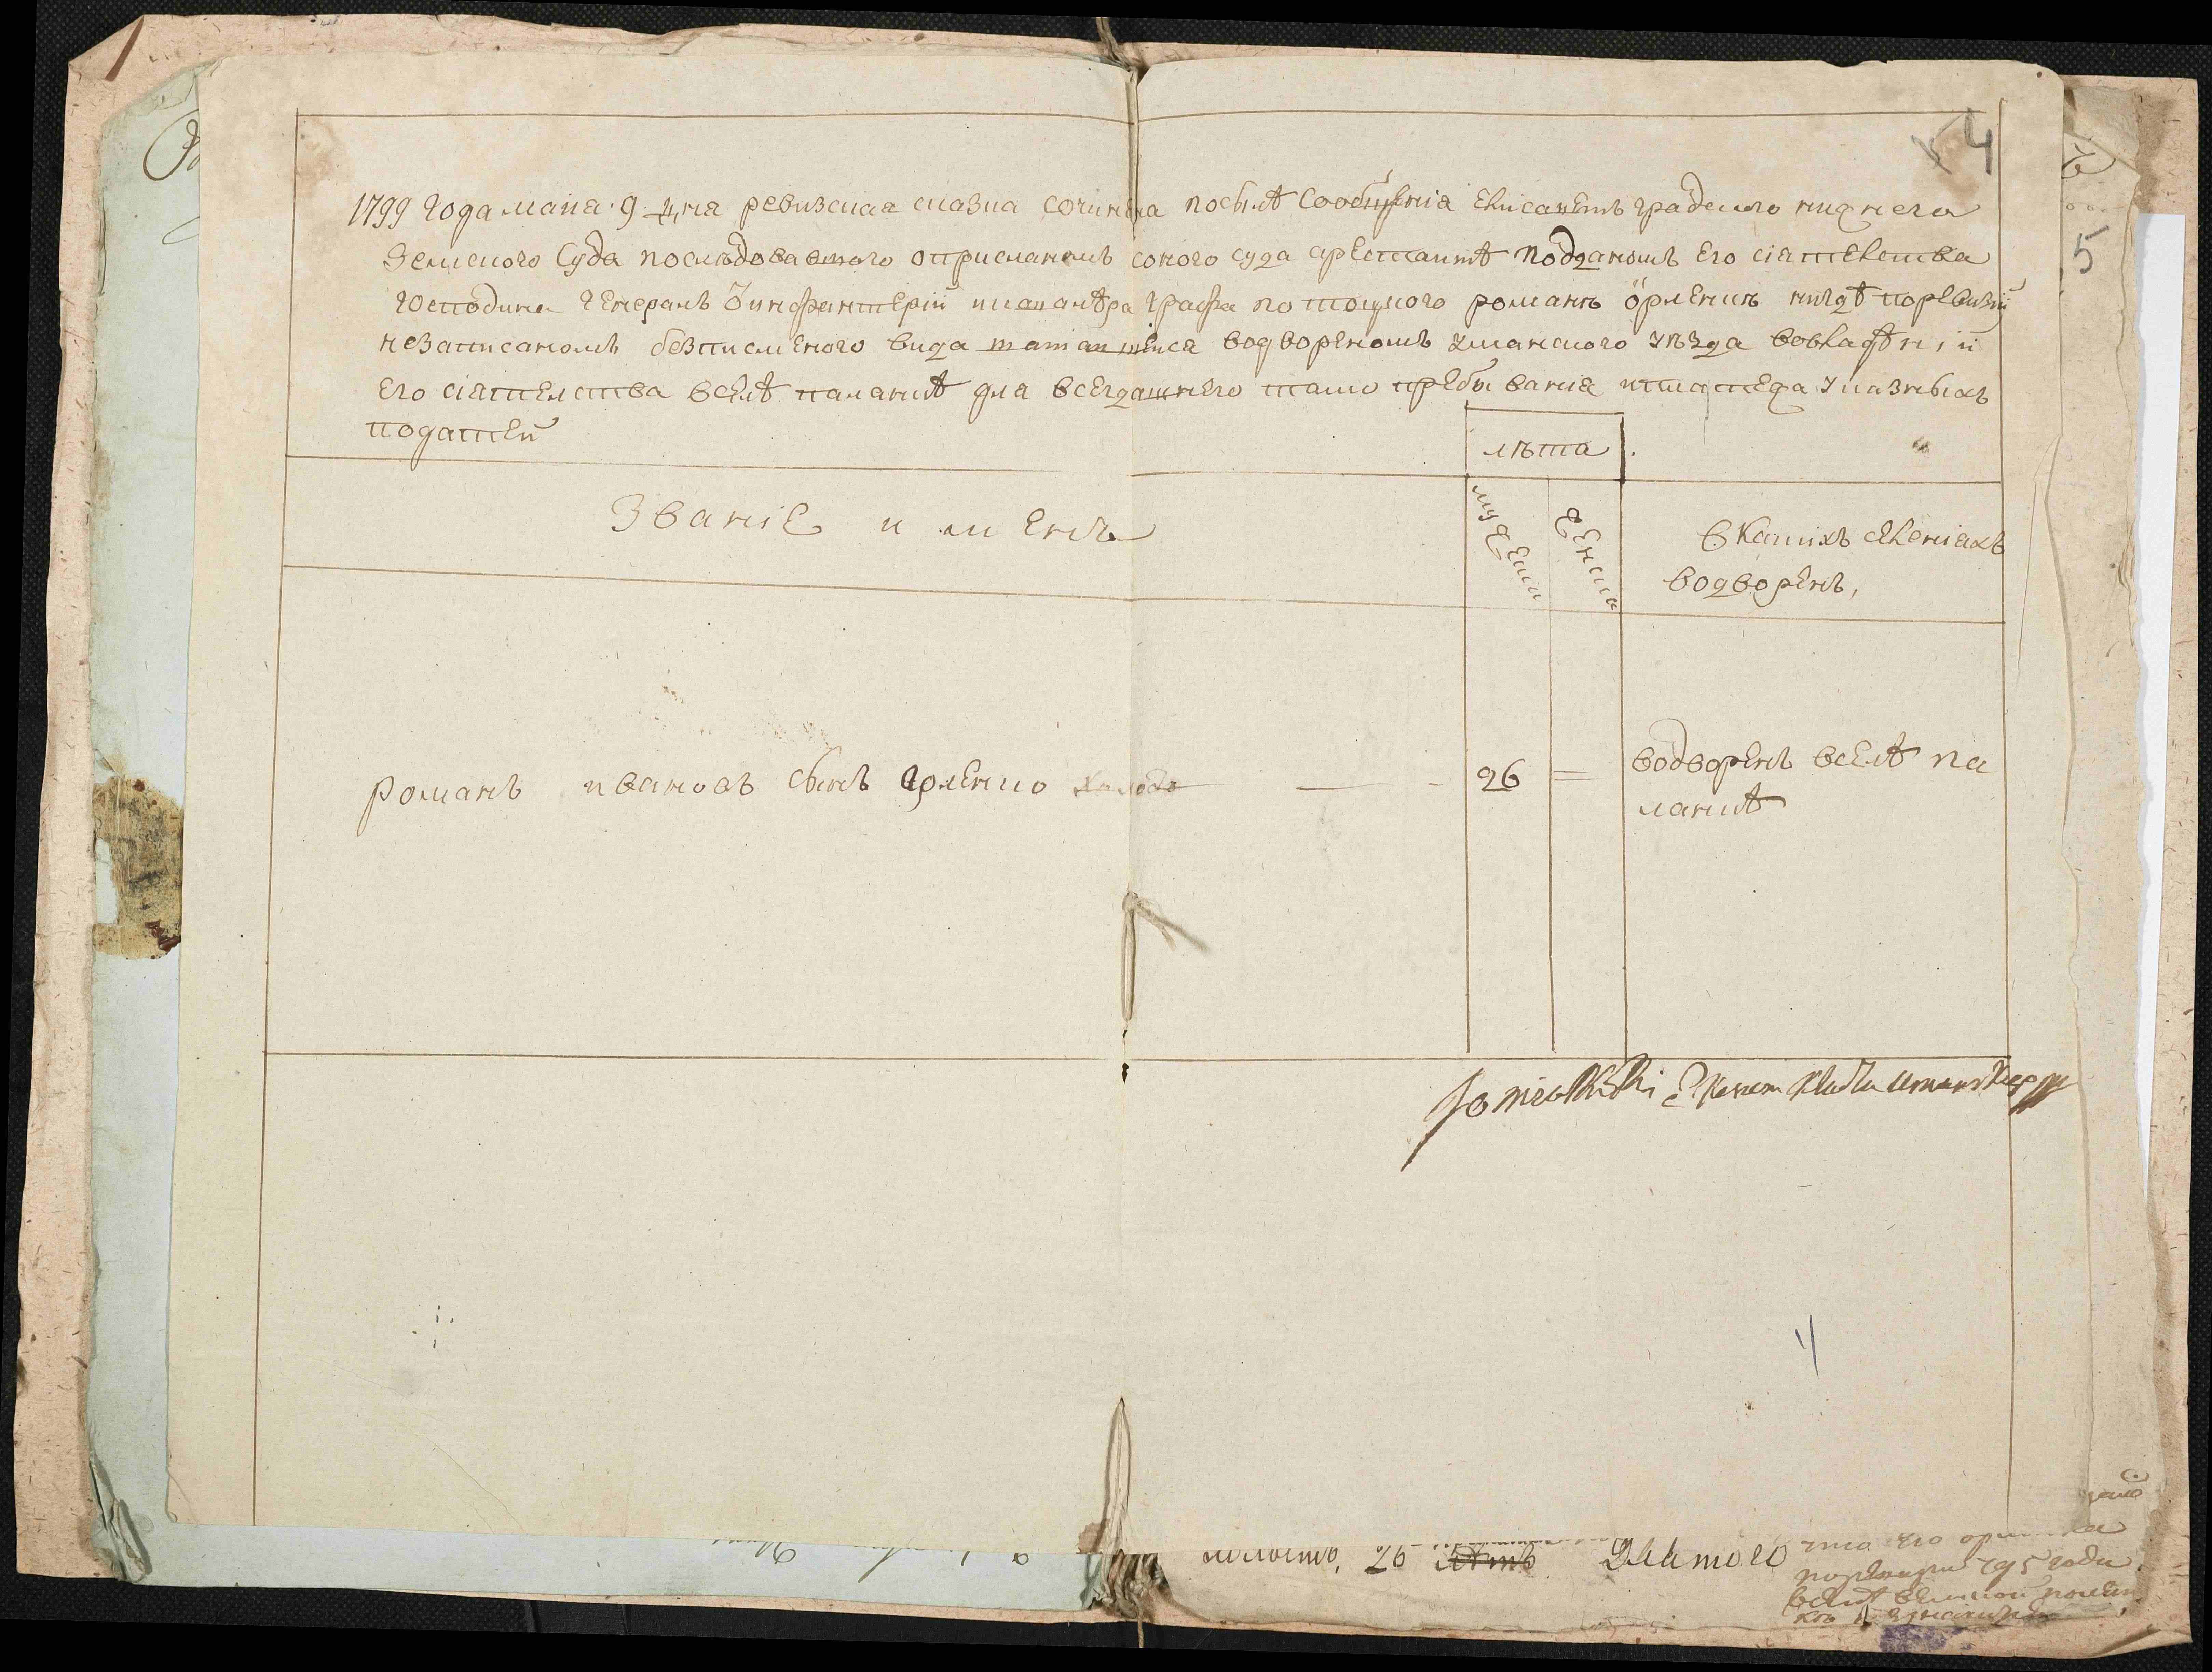 4
5
1799 года маия 9 дня ревизская сказка сочинена посилѣ сообщения Елисаветъ градского нижнего
Земского Суда последовавшого оприсланомъ соного суда арестантѣ подданомъ его сіятелства
Господина Генералъ Зинфантерїи икавалѣра графа потоцкого романѣ орленкѣ нигдѣ поревизїи
незаписаномъ безписменого вида шатающемся водвореномъ уманского уѣзда вовладѣніи
его сіятелства вселѣ паланкѣ для всегдашнего тамо пребиванія иплатежа указныхъ
податей
лѣта
Званіе имена
мужеска
женска
Вкакихъ селеніяхъ
водворенъ,
романъ ивановъ сынъ Орленко холостъ
26
водворенъ вселѣ па
ланкѣ
холостъ, 26 лѣтъ Для того
795 года
вселѣ